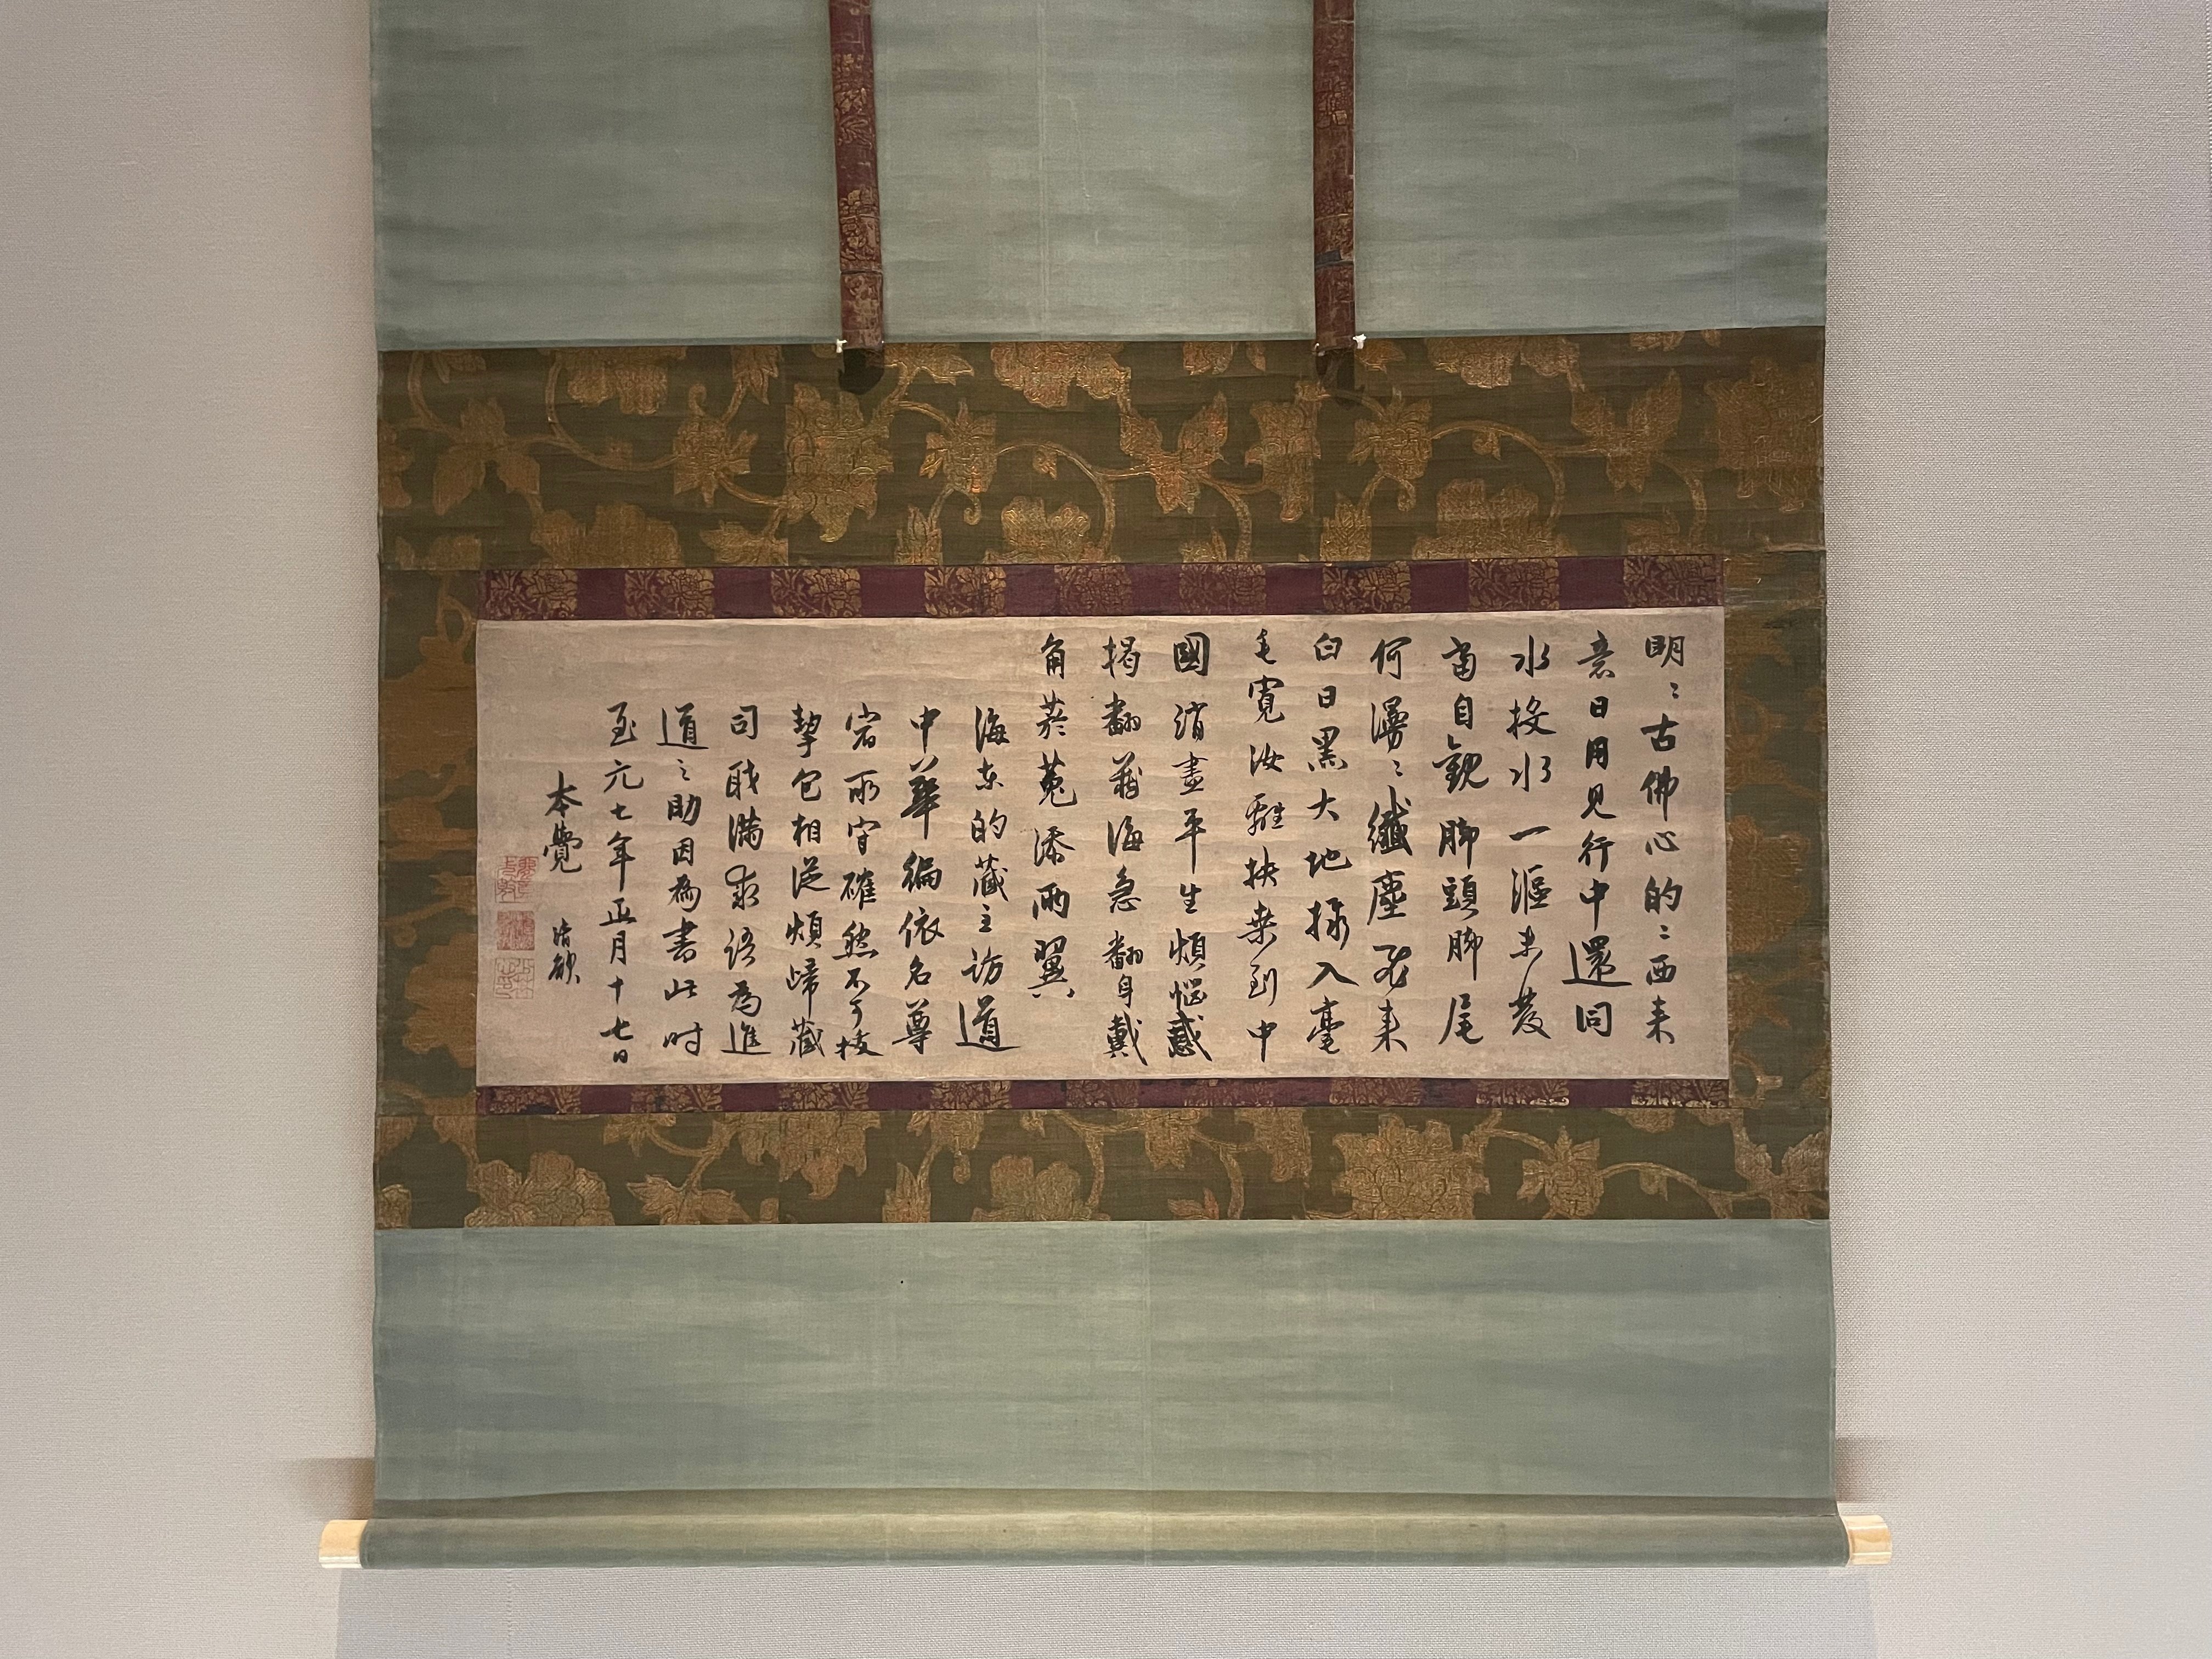 明〻古佛心的〻西来
意日用見行中還同
水投水一漚未發
當自観脚頭脚尾
何濔〻纎塵不来
白日黒大地掇入毫
毛寛汝離抉桒到中
國消盡平生煩惱惑
掲翻蔵海急翻身戴
角菸蒐添兩翼
海东的蔵主訪道
中華徧依名尊
宿所守確然不可枝
挈包相従煩歸蔵
司戝満求語為進
道之助因為書此时
至元七年正月十七日
本覺 清欲